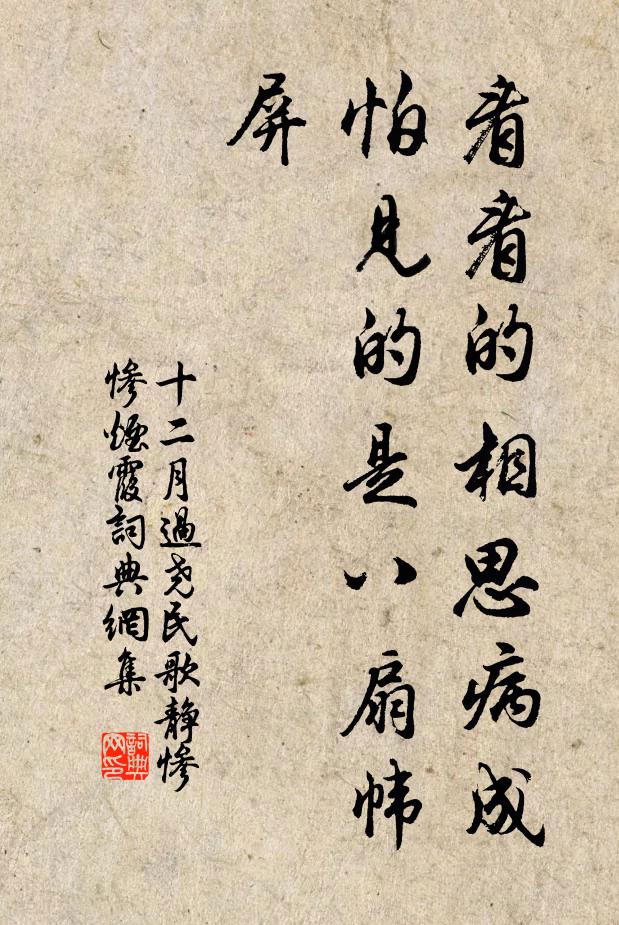 看看的相思病成
怕見的是八扇帏
屏
十二月過尧民歌静惨
惨煙霞詞典網集
詞典网印